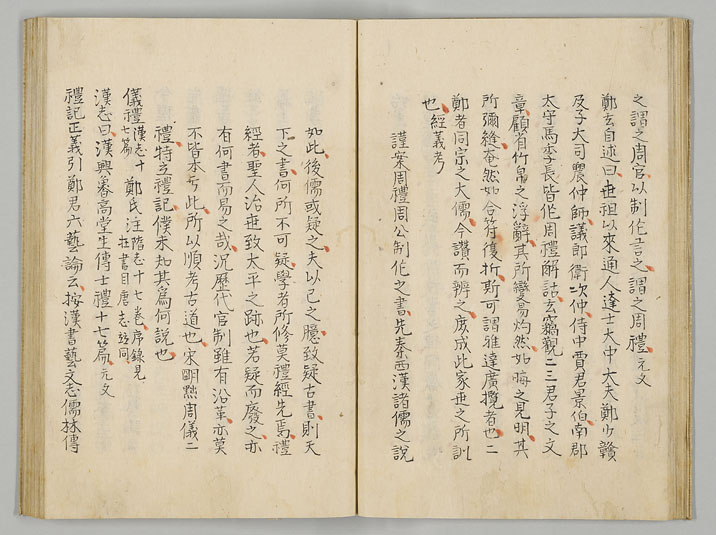 之謂之周官以制作言之謂之周禮元文
鄭玄自述曰世祖以來通人達士大中大夫鄭少贛
及子大司農仲師議郎衛次仲侍中賈君景伯南郡
太守馬季長皆作周禮解詁玄竊觀二三君子之文
章顧省竹帛之浮辭其所變易灼然如晦之見明其
所彌縫奄然如合符復析斯可謂雅達廣攬者也二
鄭者同宗之大儒今讚而辨之庶成此家世之所訓
也經義考
謹案周禮周公制作之書先秦西漢諸儒之說
如此後儒或疑之夫以己之臆致疑古書則天
下之書何所不可疑學者所修莫禮經先焉禮
經者聖人治世致太平之跡也若疑而廢之亦
有何書而易之哉況歷代官制雖有沿革亦莫
不皆本于此所以順考古道也宋鄭黙周儀二
禮特立禮記僕未知其為何說也
儀禮漢志十七篇 鄭氏注隋志十七卷序錄見在書目唐志並同
漢志曰漢興魯高堂生傳士禮十七篇元文
禮記正義引鄭君六藝論云按漢書藝文志儒林傳